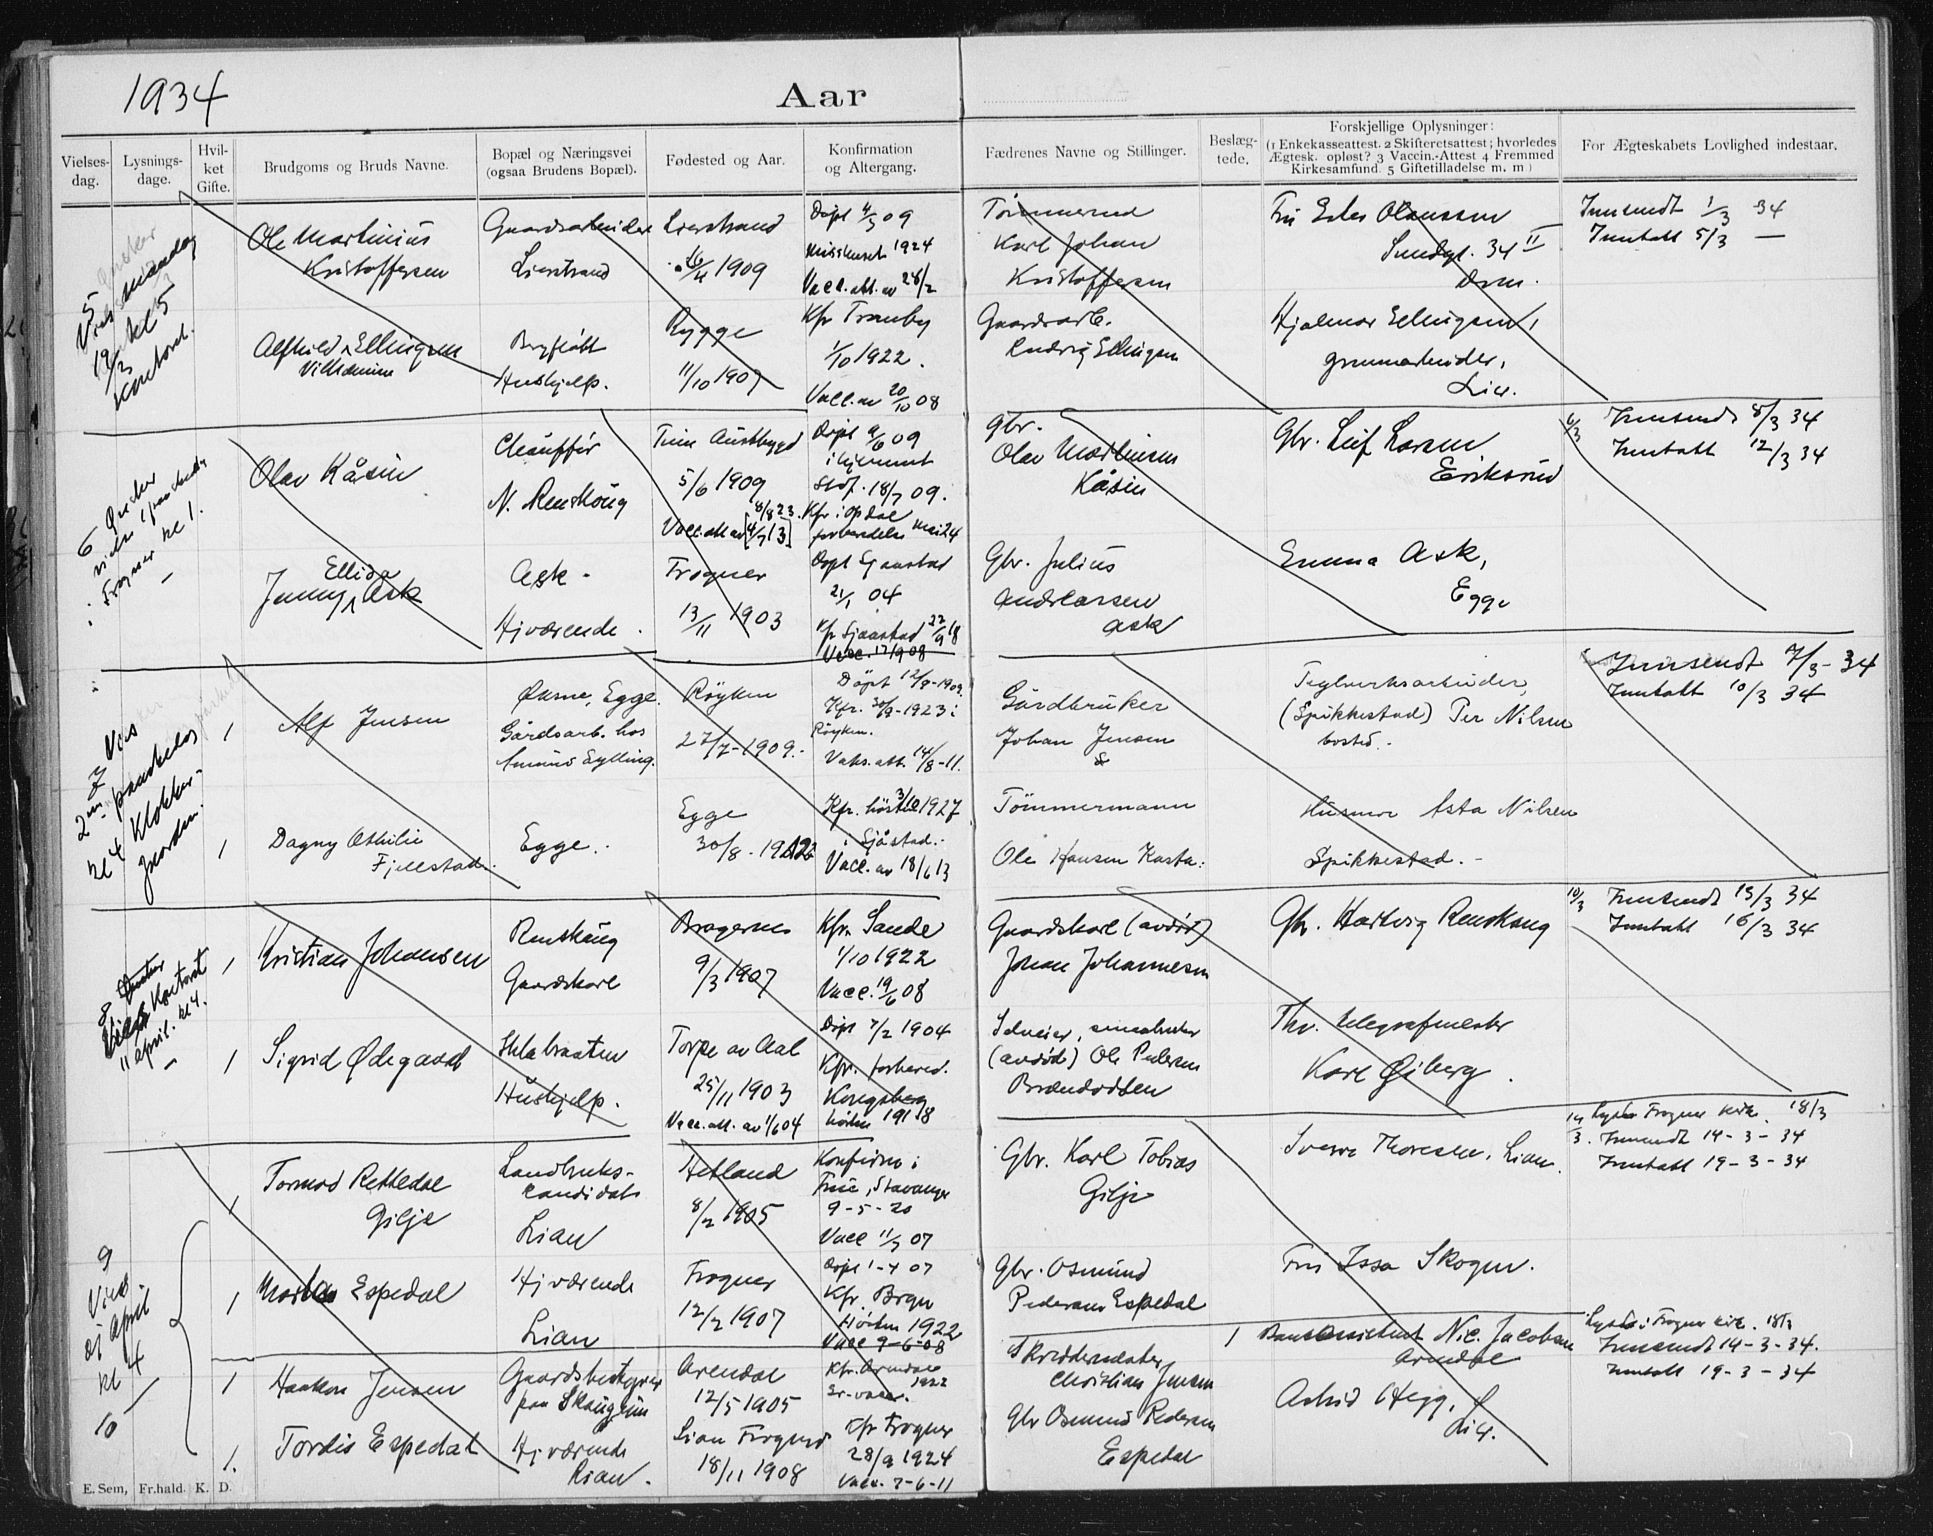 1934
Aar
Vielses-dag.
Lysnings-dage.
Hvilket Gifte.
Brudgoms og Bruds Navne.
Bopæl og Næringsvei (ogsaa Brudens Bopæl).
Fødested og Aar.
Konfirmation og Altergang.
Fædrenes Navne og Stillinger.
Beslæg-tede.
Forskjellige Oplysninger: (1 Enkekasseattest. 2 Skifteretsattest; hvorledes Ægtesk. opløst? 3 Vaccin.-Attest 4 Fremmed Kirkesamfund. 5 Giftetilladelse m. m)
For Ægteskabets Lovlighed indestaar.
5
kl 5
kontoret.
Ole Martinius
Kristoffersen
Gaardsarbeider
Lierstrand
Lierstrand
1909
Døpt 4/5 09
1924
Vacc. att. av 28/2
Tømmermand
Karl Johan
Kristoffersen
Sundgt. 34 II
Drm.
Innsendt 1/3 34
Inntatt 5/3 —
Alfhild Ellingsen
Vilhelmine
Bergfløtt
Hushjelp.
Rygge
11/10 1907
Kfr Tranby
1/10 1922.
Vacc. av 20/10 08
Gaardsarb.
Ludvig Ellingsen
Hjalmar Ellingsen,
Lier.
6 Ønsker
vielse i
Frogner kl 1.
Olav Kåsin
Chauffør
N. Renskoug
5/6 1909
Vacc. att av [4/7 13]
Døpt 9/6 09
i hjemmet
Stdf. 18/7 09.
Kfr i Opdal
mai 24
Gbr.
Olav Martinsen
Kåsin
Gbr. Leif Larsen
Eriksrud
6/3
Innsendt 8/3 34
Inntatt 12/3 34
Ellida
Jenny Ask
Ask -
Hjværende.
Frogner
13/11 1903
Døpt Sjaastad
21/1 04
Kfr Sjaastad 22/9 18
Vacc. 17/9 08
Gbr. Julius
Andreassen
Ask
Emma Ask,
Egge
7
Vies
2den paaskedag
kl 4 Klokker-
gaarden.
1
Alf Jensen
Øksne, Egge.
Gårdsarb. hos
Amund Sylling.
Røyken
27/7-1909.-
Døpt 12/9-1909.
Kfr. 30/9-1923 i
Røyken.
Vaks. att. 14/8-11.
Gårdbruker
Johan Jensen
Teglverksarbeider,
(Spikkestad) Per Nilsen
bosted.
Innsendt 7/3-34
Inntatt 10/3 34
1
Dagny Othilie
Fjellstad.
Egge.
Egge
30/8 - 1912
Kfr. høsten 1927
i Sjåstad.
Vacc. av 18/6 13
Tømmermann
Ole Hansen Kasta.
Husmor Asta Nilsen
Spikkestad. -
8
11 april. kl 4.
1
Kristian Johansen
Renskaug
Gaardskarl
Bragernes
9/3 1907
Kfr. Sande
1/10 1922
Vacc. 19/6 08
Gaardskarl (avdød)
Johan Johannesen
Gbr. Hartvig Renskaug
10/3
Innsendt 15/3 34
Inntatt 16/3 34
1
Sigrid Ødegaard
Hushjelp.
Torpe av Aal
25/11 1903
Vacc. att. av 1/6 04
Døpt 7/2 1904
Kfr. forbered.
Kongsberg
høsten 1918
(avdød) Ole Pedersen
Thv. telegrafmester
Karl Øiberg.
1
Tormod Rettedal
Gilje
Landbruks-
kandidat
Lian
Hetland
8/2 1905
Konfirm. i
Frue, Stavanger
9-5-20
Vacc 11/7 07
Gbr. Karl Tobias
Gilje
Sverre Thoresen, Lian.
14/3.
Lyst Frogner kirke. 18/3
Innsendt 14-3-34
Inntatt 19-3-34
9
Vies
april
kl 4
1
Espedal
Hjværende
Lian
Frogner
12/2 1907
Døpt 1-4 07
Kfr. Brgn
Høsten 1922
Vacc 9-6-08
Gbr. Osmund
Pedersen Espedal
Frk Issa Skogen.
10
1
Haakon Jensen
Gaardsbestyrer
paa Skaugum
Arendal
12/5 1905
Kfr. Arendal
1922
Skreddermester
Christian Jensen
1
Nic. Jacobsen
Arendal
Lyst i Frogner kirke. 18/3
Innsendt 14-3-34.
Inntatt 19-3-34
1.
Tordis Espedal
Hjværende
Lian.
Lian Frogner
18/11 1908
Kfr Frogner
28/9 1924
Vacc. 7-6-11
Gbr Osmund Pedersen
Espedal
Astrid Hegg,
Lier.
E. Sem, Fr.hald. K. D.